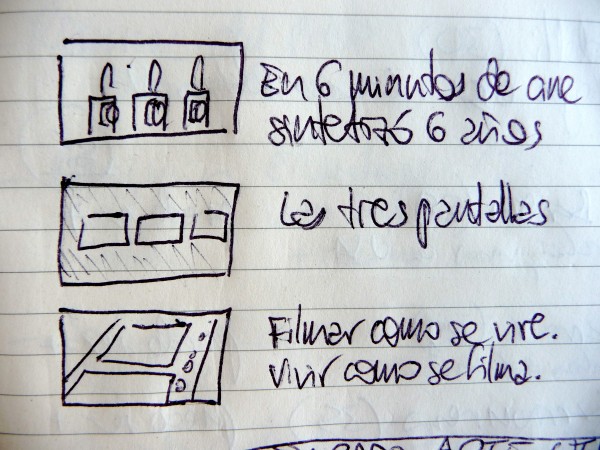 En 6 minutos de cine
sintetizó 6 años
Las tres pantallas
Filmar como se vive.
Vivir como se filma.